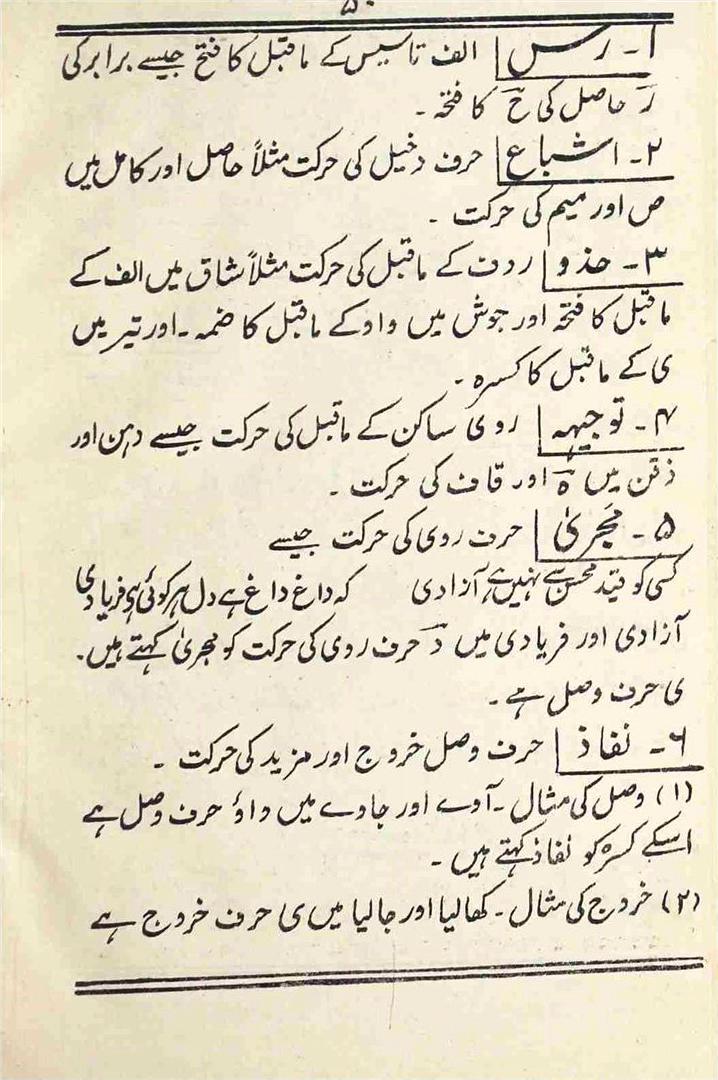 ۵۰
۱۔ رس الف تاسیس کے ماقبل کا فتح جیسے برابر کی
رَ حاصل کی حَ کا فتحہ ۔
۲۔ اشباع حرف دخیل کی حرکت مثلاً حاصل اور کامل میں
ص اور میم کی حرکت ۔
۳۔ حذو ردف کے ماقبل کی حرکت مثلاً شاق میں الف کے
ماقبل کا فتحہ اور جوش میں واو کے ماقبل کا ضمہ ۔ اور تیر میں
ی کے ماقبل کا کسرہ ۔
۴۔ توجیہہ روی ساکن کے ماقبل کی حرکت جیسے دہن اور
ذقن میں ہَ اور قاف کی حرکت ۔
۵۔ مَجریٰ حرف روی کی حرکت جیسے
کسی کو قید محسن سے نہیں ہے آزادی کہ داغ داغ ہے دل ہر کوئی ہی فریادی
آزادی اور فریادی میں دَ حرف روی کی حرکت کو مجریٰ کہتے ہیں۔
ی حرف وصل ہے ۔
۶۔ نفاذ حرف وصل خروج اور مزید کی حرکت ۔
(۱) وصل کی مثال ۔ آوے اور جاوے میں واؤ حرف وصل ہے
اسکے کسرہ کو نفاذ کہتے ہیں ۔
(۲) خروج کی مثال ۔ کھالیا اور جالیا میں ی حرف خروج ہے